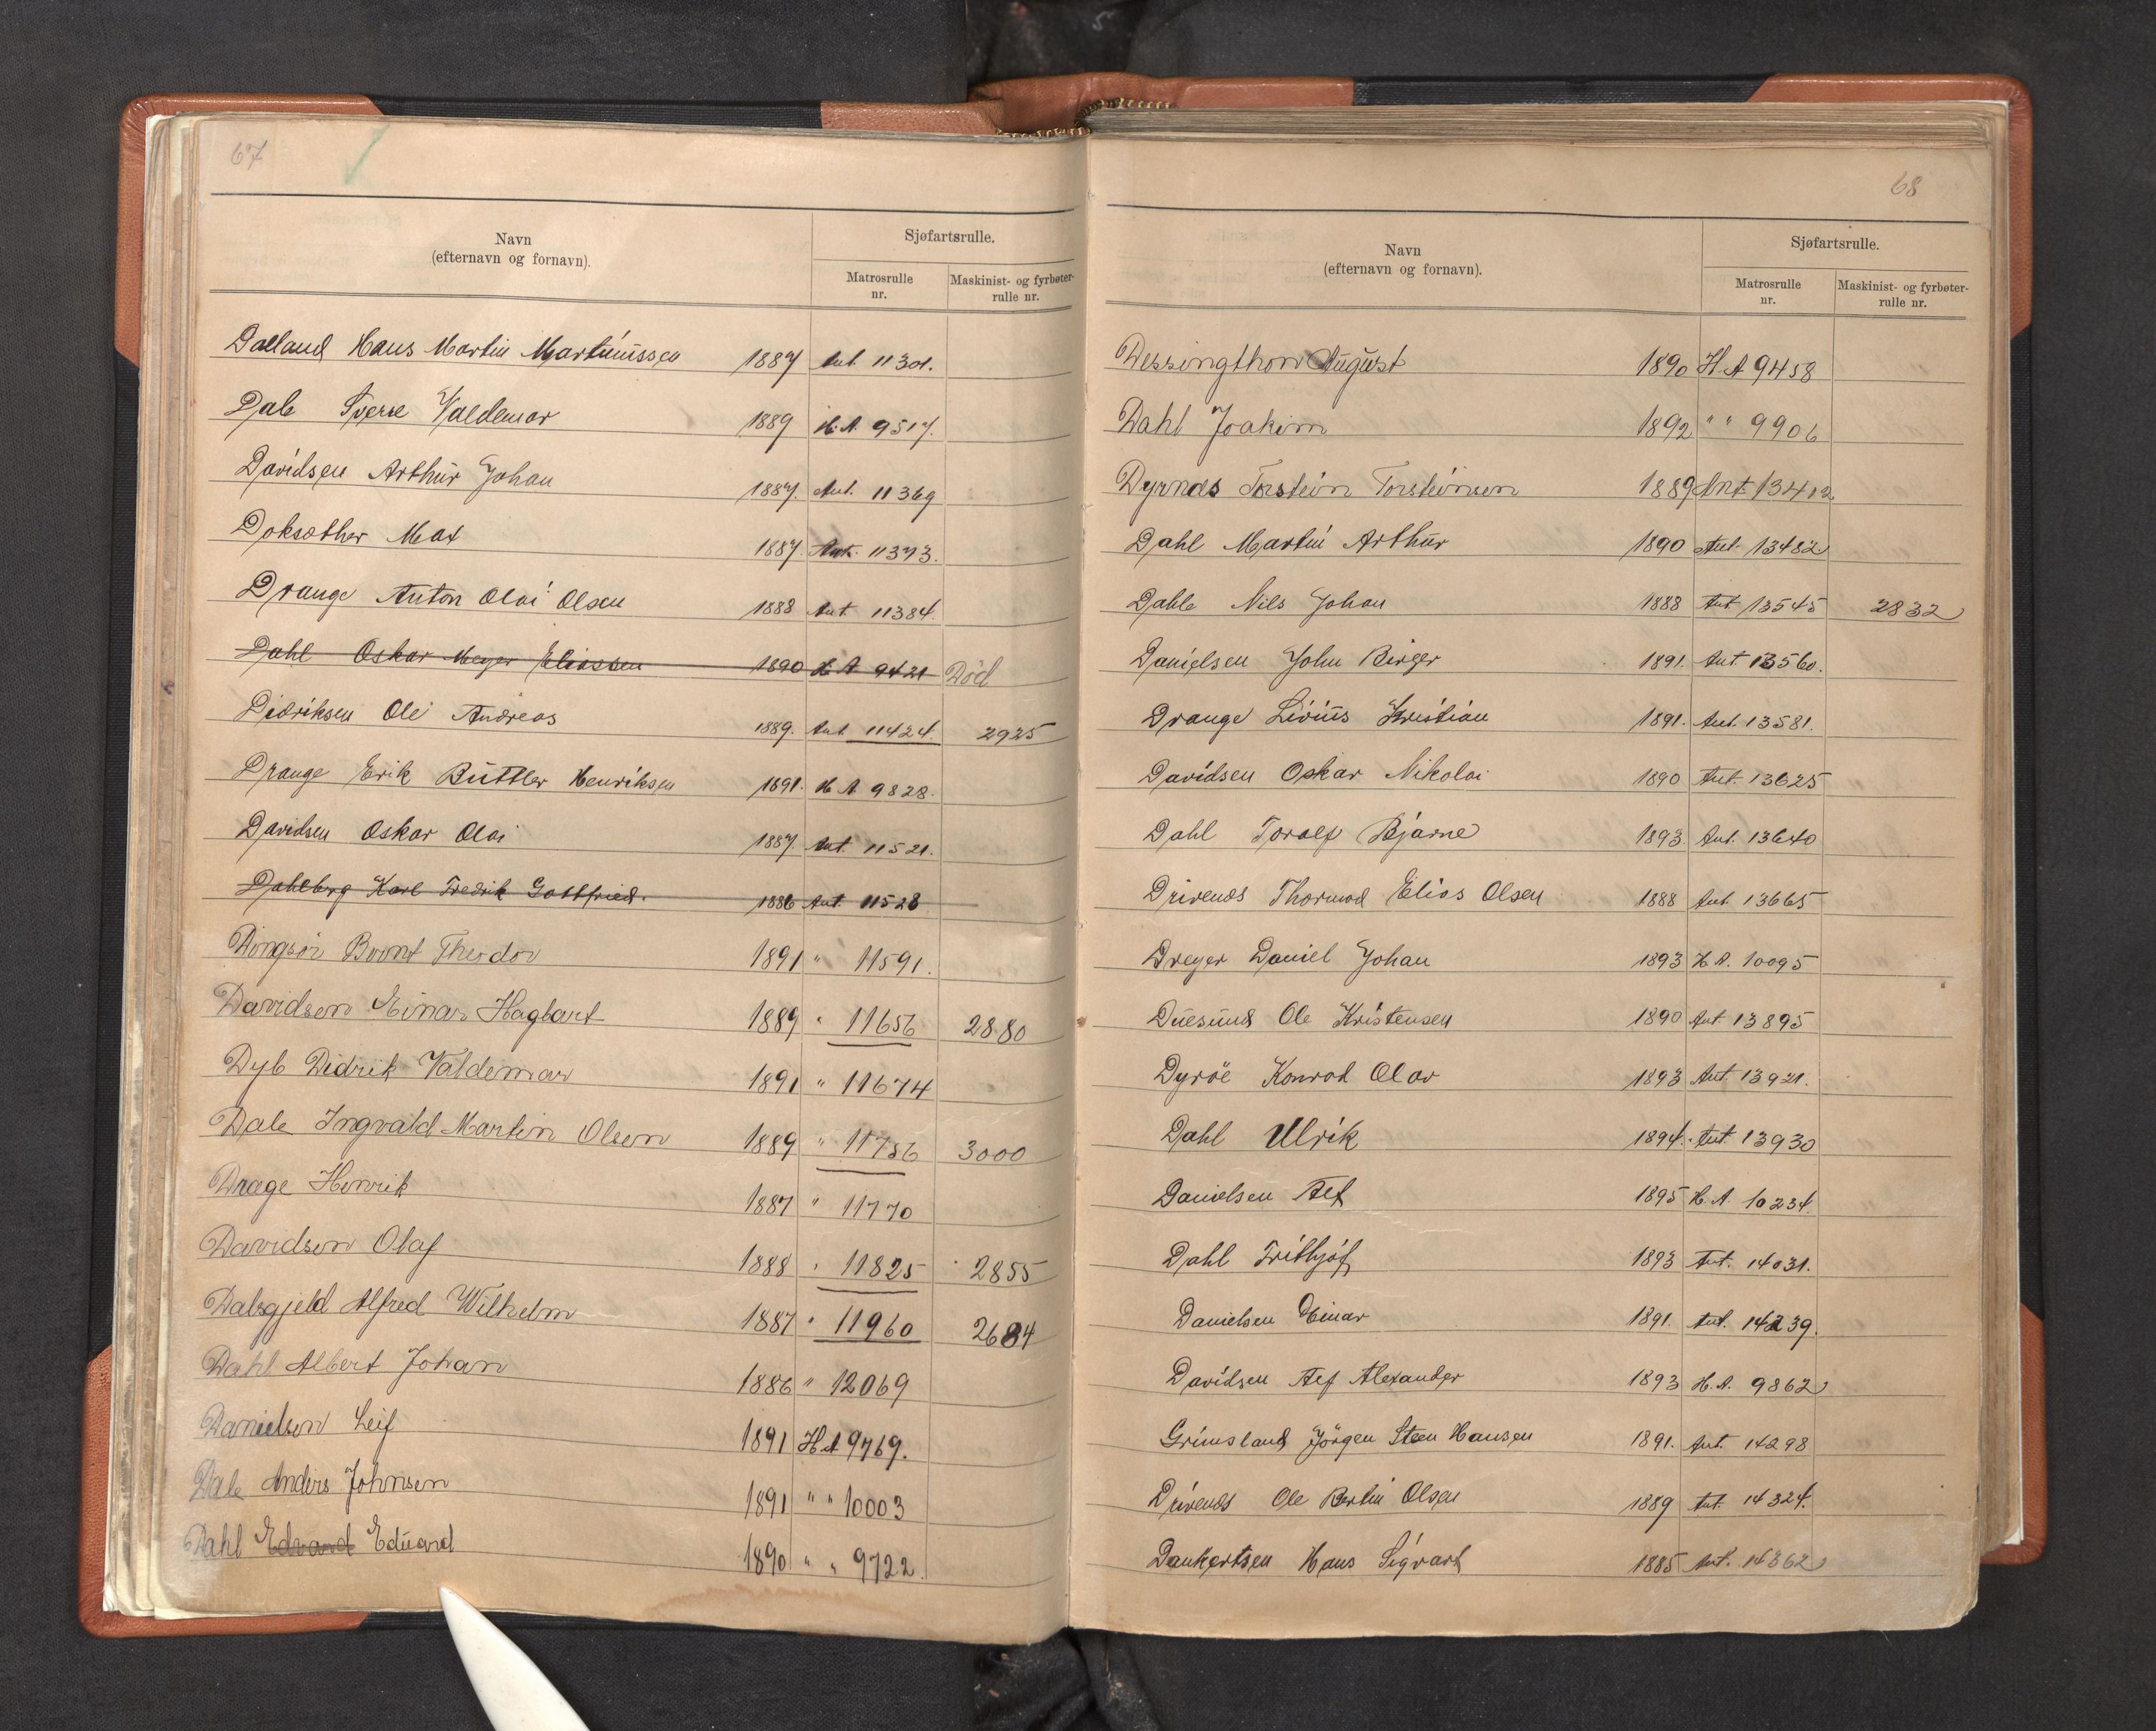 67
Navn
(efternavn og fornavn).
Sjøfartsrulle.
Matrosrulle
nr.
Maskinist- og fyrbøter-
rulle nr.
Dalland Hans Martin Martinüssen 1887 Ant. 11301.
Dale Sverre Valdemar 1889 H.A. 9517.
Davidsen Arthür Johan 1887. Ant. 11369
Doksæther Max 1887. Ant. 11373.
Drange Anton Olai Olsen 1888 Ant. 11384.
Dahl Oskar Meyer Eliassen 1890 H A 9421 Död
Didriksen Ole Andreas 1889. Ant 11424. 2925
Drange Erik Büttler Henriksen 1891. H A. 9828.
Davidsen Oskar Olai 1887. Ant. 11521.
Dahlberg Karl Fredrik Gottfried. 1886 Ant. 11528
Dingsör Bernt Theodor 1891 " 11591.
Davidsen Einar Hagbart 1889 " 11656 2880
Dyb Didrik Valdemar 1891 " 11674
Dale Ingvald Martin Olsen 1889 " 11756 3000
Drage Henrik 1887 " 11770
Davidsen Olaf 1888 " 11825 2855
Dalsgjeld Alfred Wilhelm 1887 " 11960 2684
Dahl Albert Johan 1886 " 12069
Danielsen Leif 1891 H A 9769.
Dale Anders Johnsen 1891 " " 10003
Dahl Edvard Edüard 1890 " " 9722.
68
Navn
(efternavn og fornavn).
Sjøfartsrulle.
Matrosrulle
nr.
Maskinist- og fyrbøter-
rulle nr.
Dessingthon Aügüst 1890 H A 9458
Dahl Joakim 1892 " " 9906
Dyrnæs Torstein Torsteinsen 1889 Ant 13412
Dahl Martin Arthür 1890 Ant. 13482
Dahle Nils Johan 1888 Ant 13545 2832
Danielsen John Birger 1891. Ant 13560.
Drange Liviüs Kristian 1891. Ant. 13581.
Davidsen Oskar Nikolai 1890 Ant. 13625
Dahl Toralf Bjarne 1893 Ant. 13640
Drivenes Thormod Elias Olsen 1888 Ant. 13665
Dreyer Daniel Johan 1893 H A. 10095
Düesünd Ole Kristensen 1890 Ant. 13895
Dyröe Konrad Olav 1893 Ant 13921.
Dahl Ulrik 1894. Ant 13930
Danielsen Alf 1895 H. A. 10234.
Dahl Frithjof 1893 Ant. 14031.
Danielsen Einar 1891. Ant. 14239.
Davidsen Alf Alexander 1893 H. A. 9862
Grimsland Jörgen Steen Hansen 1891. Ant. 14298
Drivenes Ole Bertin Olsen 1889 Ant. 14324.
Dankertsen Hans Sigvart 1885 Ant. 14362